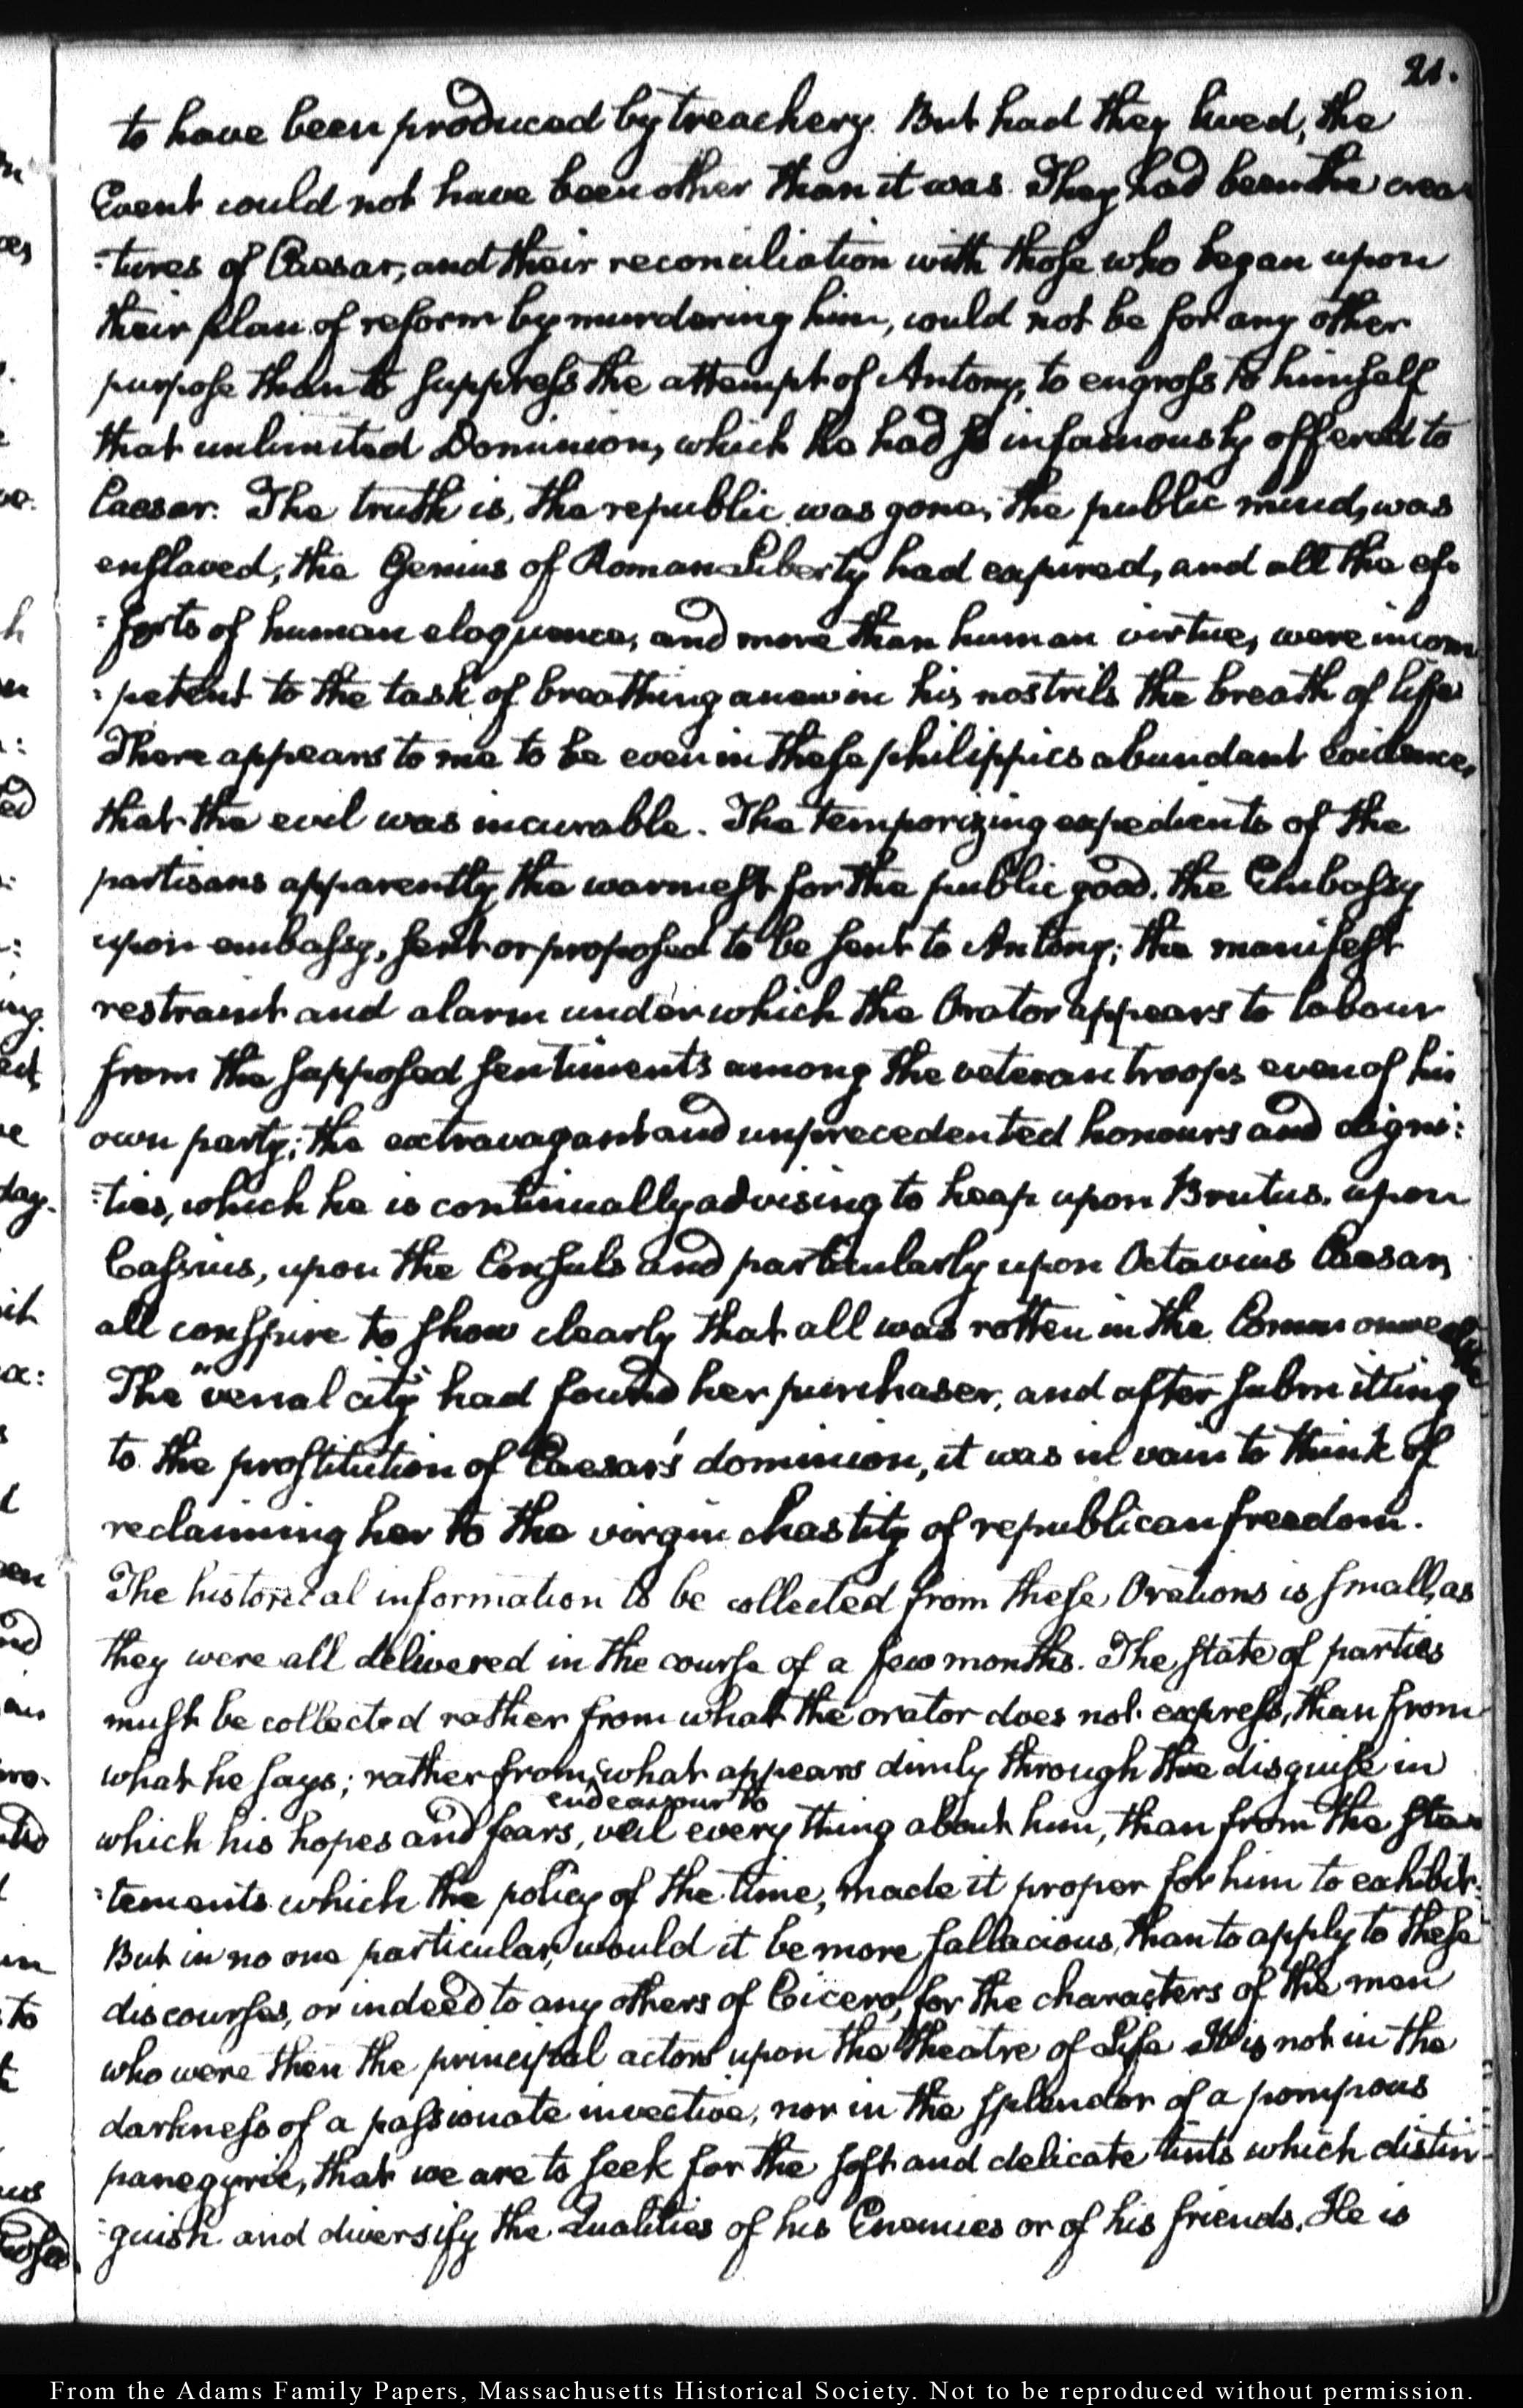 21.
to have been produced by treachery. But had they lived, the
Event would not have been other than it was. They had been the crea
:tures of Caesar, and their reconciliation with those who began upon
their plan of reform by murdering him, would not be for any other
purpose than to suppress the attempt of Antony, to engross to himself
that unlimited Dominion, which he had so infamously offered to
Caesar. The truth is, the republic was gone; the public mind, was
enslaved; the Genius of Roman Liberty had expired, and all the ef:
:forts of human eloquence, and more than human virtue, were incom
:petent to the task of breathing anew in his nostrils the breath of life
There appears to me to be even in these philippics abundant evidence,
that the evil was incurable. The temporizing expedients of the
partisans apparently the warmest for the public good. the Embassy
upon embassy, sent or proposed to be sent to Antony; the manifest
restraint and alarm under which the Orator appears to labour
from the supposed sentiments among the veteran troops even of his
own party; the extravagant and unprecedented honours and digni:
:ties, which he is continually advising to heap upon Brutus, upon
Cassius, upon the Consuls and particularly upon Octavius Caesar,
all conspire to show clearly that all was rotten in the Commonwealth
The "venal city" had found her purchaser, and after submitting
to the prostitution of Caesar's dominion, it was in vain to think of
reclaiming her to the virgin chastity of republican freedom.
The historical information to be collected from these Orations is small, as
they were all delivered in the course of a few months. The state of parties
must be collected rather from what the orator does not express, than from
what he says; rather from what appears dimly through the disguise in
endeavour to
which his hopes and fears, veil every thing about him, than from the sta
:tements which the policy of the time, made it proper for him to exhibit.
But in no one particular, would it be more fallacious, than to apply to these
discourses, or indeed to any others of Cicero, for the characters of the men
who were then the principal actors upon the theatre of Life It is not in the
darkness of a passionate invective, nor in the splendor of a pompous
panegyric, that we are to seek for the soft and delicate tints which distin
:guish and diversify the Qualities of his Enemies or of his friends. He is
From the Adams Family Papers, Massachusetts Historical Society. Not to be reproduced without permission.